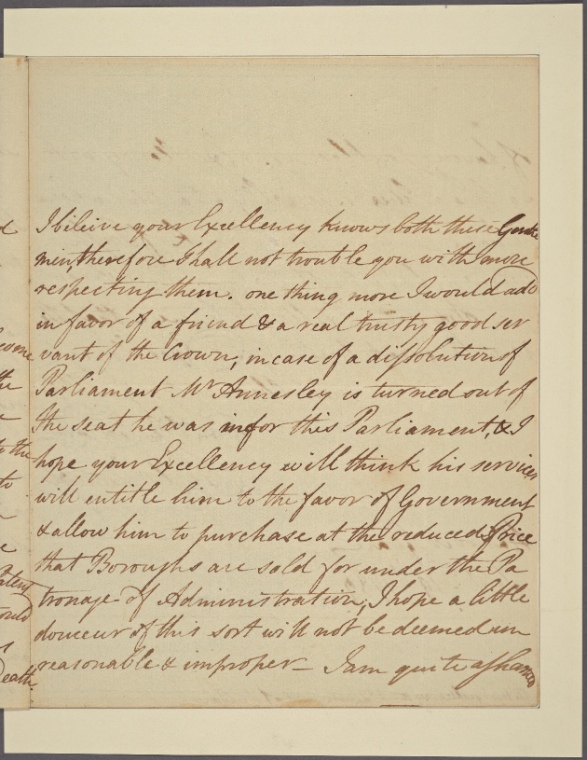 I bileive your Excellency knows both these Gentle
men, therefore I shall not trouble you with more
respecting them. one thing more I would add
in favor of a friend & a real trusty good ser
vant of the Crown, in case of a dissolution of
Parliament Mr Annesley is turned out of
the seat he was in for this Parliament, & I
hope your Excellency will think his services
will entitle him to the favor of Government
& allow him to purchase at the reduced Price
that Boroughs are sold for under the Pa
tronage of Administration, I hope a little
douceur of this sort will not be deemed un
reasonable & improper – I am quite ashamed
the
to the
to
Death.